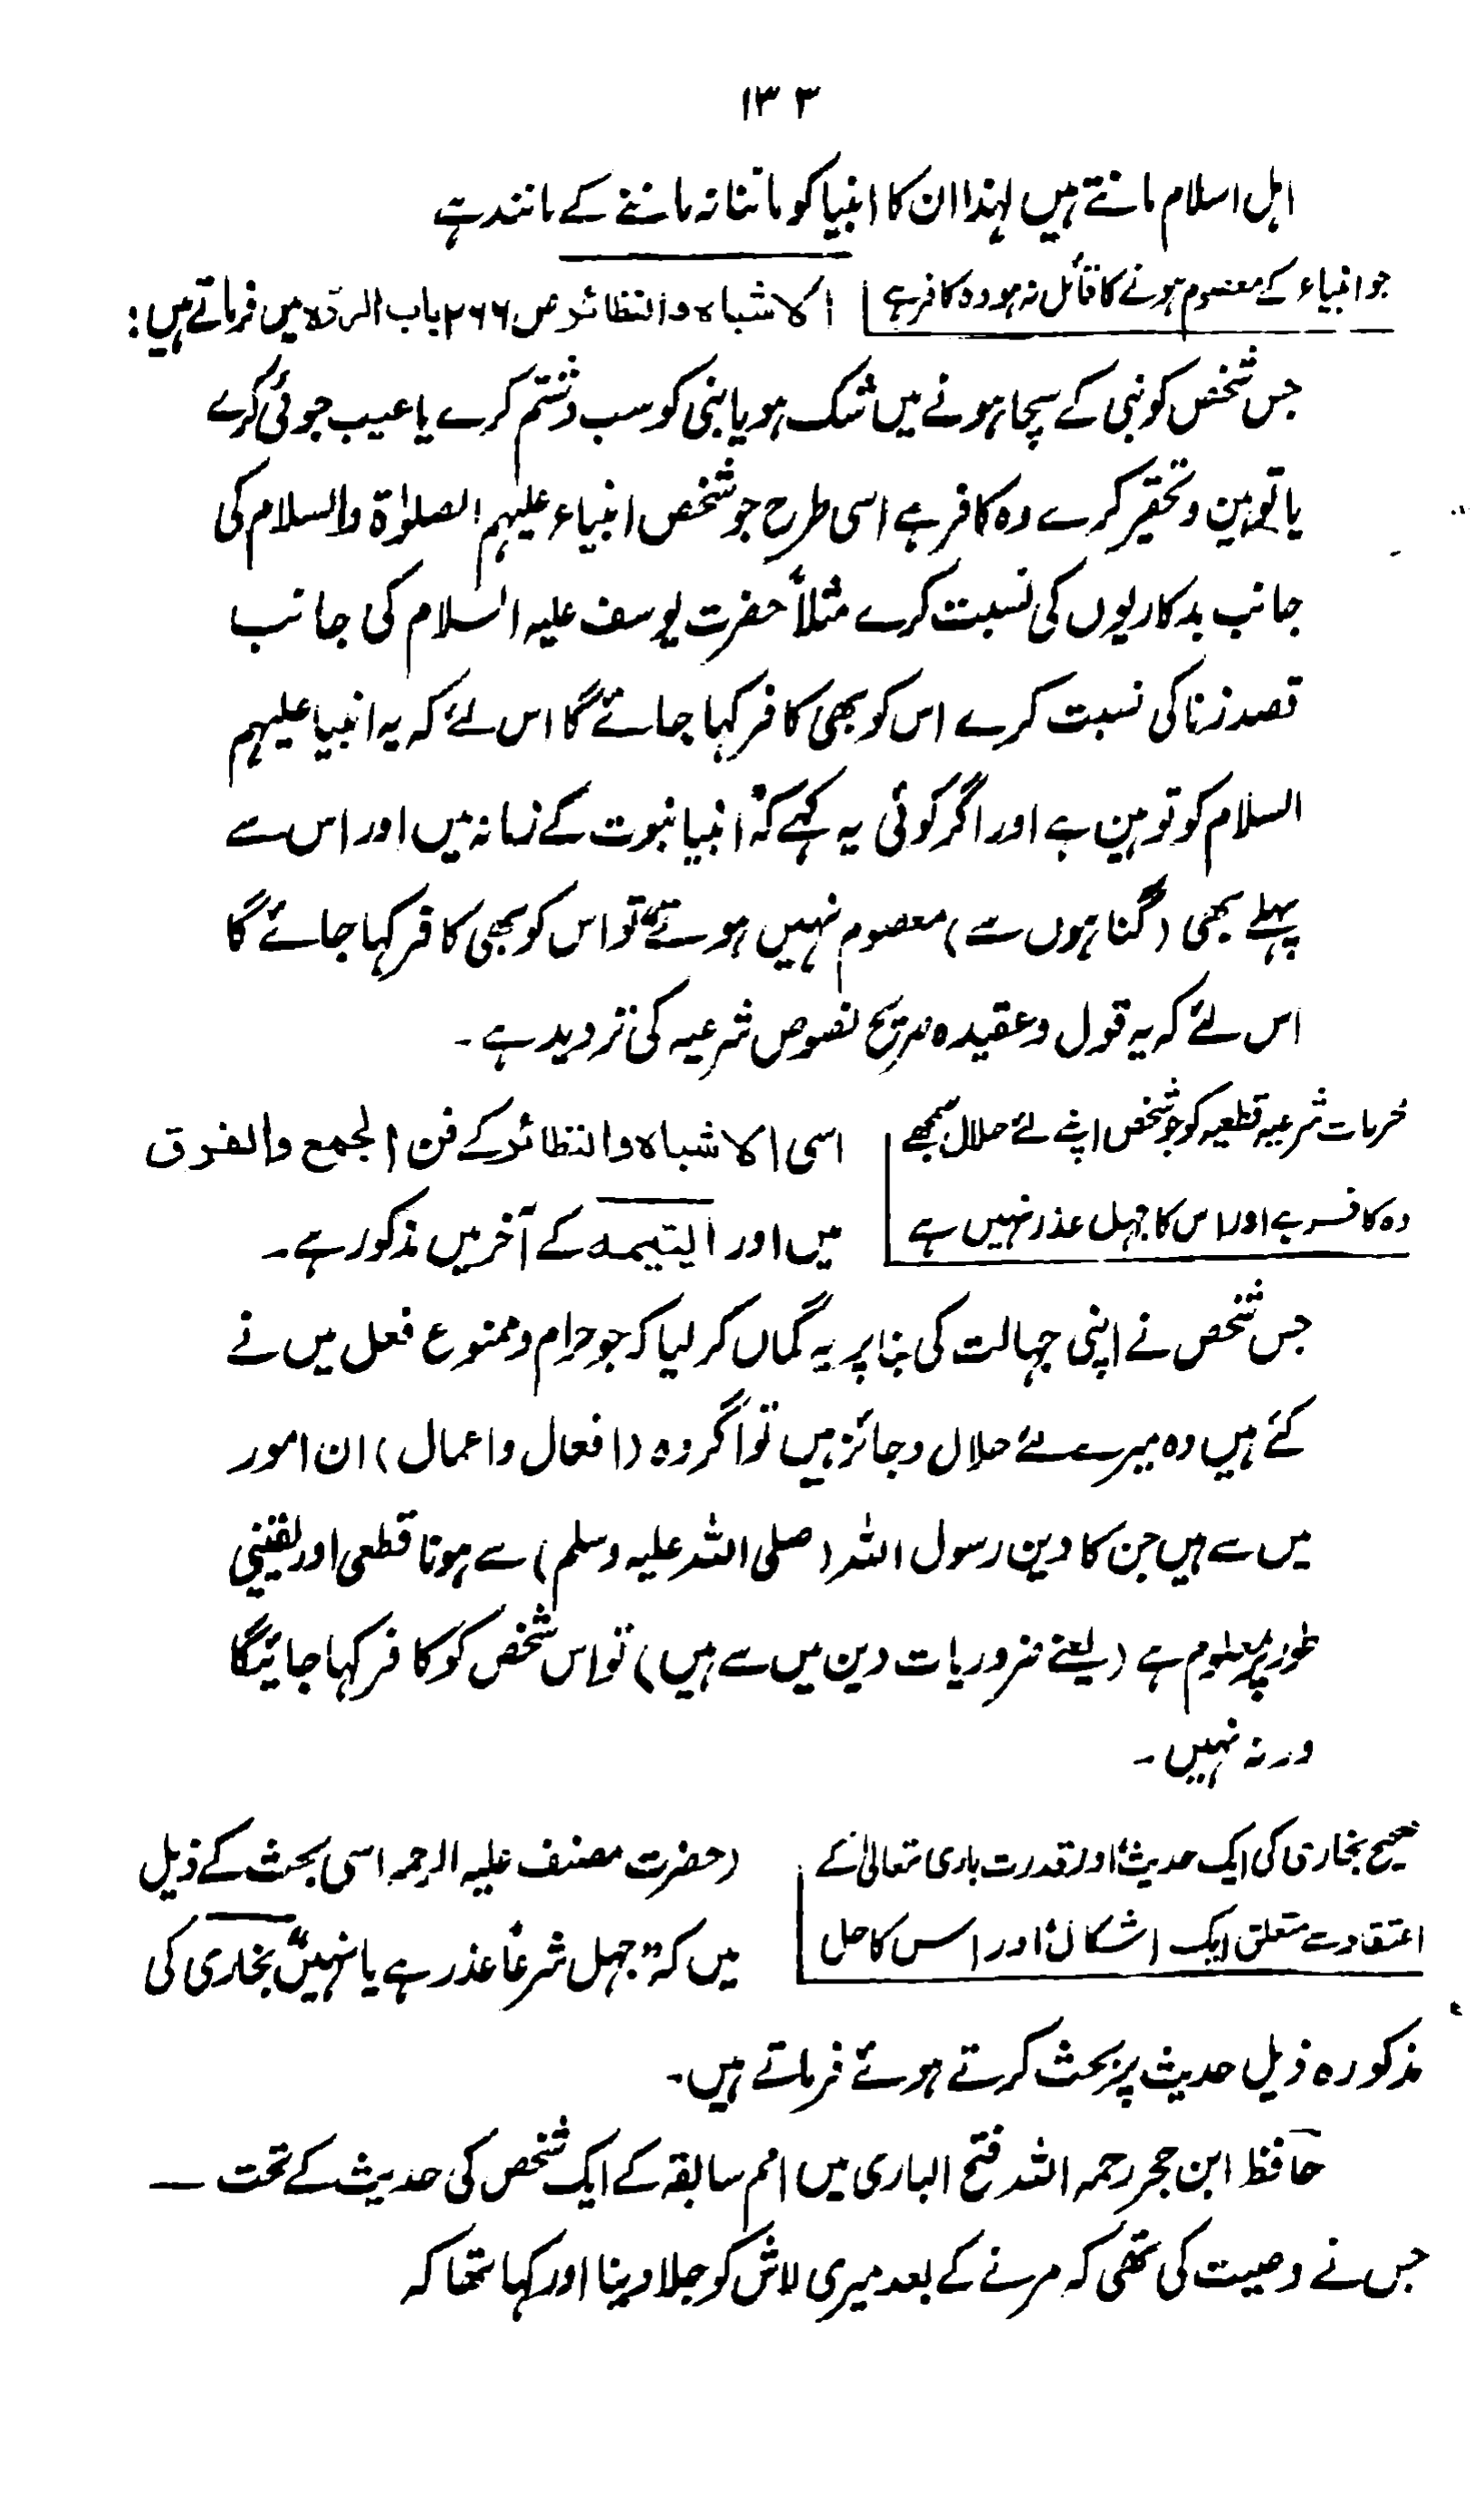 ۱۳۳
اہل اسلام مانتے ہیں لہذا ان کا انبیا کو ماننا نہ ماننے کے مانند ہے
جو انبیاء کے معصوم ہونے کا قائل نہ ہو وہ کافر ہے
الاشباہ والنظائر ص ۲۶۶ باب الردۃ میں فرماتے ہیں:
جس شخص کو نبی کے سچا ہونے میں شک ہو یا نبی کو سب و شتم کرے یا عیب جوئی کرے
یا توہین و تحقیر کرے وہ کافر ہے اسی طرح جو شخص انبیاء علیہم الصلوٰۃ والسلام کی
جانب بدکاریوں کی نسبت کرے مثلاً حضرت یوسف علیہ السلام کی جانب
قصد زنا کی نسبت کرے اس کو بھی کافر کہا جائے گا اس لئے کہ یہ انبیا علیہم
السلام کو توہین ہے اور اگر کوئی یہ کہے کہ "انبیا نبوت کے زمانہ میں اور اس سے
پہلے بھی (گناہوں سے) معصوم نہیں ہوتے" تو اس کو بھی کافر کہا جائے گا
اس لئے کہ یہ قول و عقیدہ صریح نصوص شرعیہ کی تردید ہے۔
محرمات شرعیہ قطعیہ کو جو شخص اپنے لئے حلال سمجھے
وہ کافر ہے اور اس کا جہل عذر نہیں ہے
اسی الاشباہ والنظائر کے فن الجمع والفرق
میں اور الیتیمہ کے آخر میں مذکور ہے۔
جس شخص نے اپنی جہالت کی بنا پر یہ گمان کر لیا کہ جو حرام و ممنوع فعل میں نے
کئے ہیں وہ میرے لئے حلال و جائز ہیں تو اگر وہ (افعال و اعمال) ان امور
میں سے ہیں جن کا دین رسول اللہ (صلی اللہ علیہ وسلم) سے ہونا قطعی اور یقینی
طور پر معلوم ہے (یعنے ضروریات دین میں سے ہیں) تو اس شخص کو کافر کہا جائیگا
ورنہ نہیں۔
صحیح بخاری کی ایک حدیث اور قدرت باری تعالیٰ کے
اعتقاد سے متعلق ایک اشکال اور اس کا حل
(حضرت مصنف علیہ الرحمہ اسی بحث کے ذیل
میں کہ "جہل شرعاً عذر ہے یا نہیں" بخاری کی
مذکورہ ذیل حدیث پر بحث کرتے ہوئے فرماتے ہیں۔
حافظ ابن حجر رحمہ اللہ فتح الباری میں امم سابقہ کے ایک شخص کی حدیث کے تحت —
جس نے وصیت کی تھی کہ مرنے کے بعد میری لاش کو جلا دینا اور کہا تھا کہ